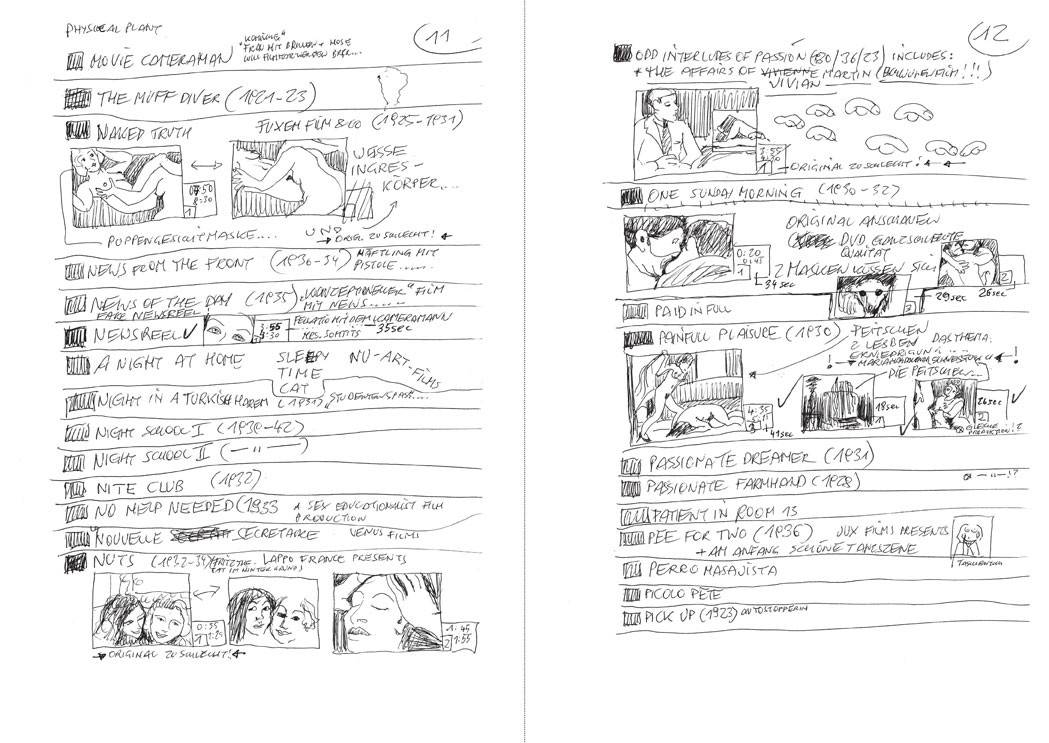 PHYSICAL PLANT
11
MOVIE CAMERAMAN
"KOMISCHE"
"FRAU MIT BRILLEN + HOSE
WILL FILMSTAR WERDEN
THE MUFF DIVER (1921-23)
NAKED TRUTH
FUXEM FILM & CO (1925-1931)
07:50
8:30
1
WEISSE
INGRES-
KÖRPER...
PUPPENGESICHTMASKE....
UND
ORIG. ZU SCHLECHT!
NEWS FROM THE FRONT (1930-34)
HÄFTLING MIT
PISTOLE.....
NEWS OF THE DAY (1935)
FAKE NEWSREEL
"KONZEPTIONELLER" FILM
MIT NEWS.....
NEWSREEL
3:55
4:30
FELLATIO MIT DEM KAMERAMANN
35sec
A NIGHT AT HOME
SLEEPY
TIME
CAT
(1931)
NU-ART-FILMS
NIGHT IN A TURKISH HAREM
"STUDENTENSPASS....
NIGHT SCHOOL I (1930-42)
NIGHT SCHOOL II (—"—)
NITE CLUB (1932)
NO HELP NEEDED (1933
A SEX EDUCATIONALIST FILM
PRODUCTION
NOUVELLE SECRETAIRE
VENUS FILMS
NUTS (1932-34)
LAPPO FRANCE PRESENTS
0:55
1:25
1
1:45
1:55
2
ORIGINAL ZU SCHLECHT!
12
ODD INTERLUDES OF PASSION (30/36/23) INCLUDES:
* THE AFFAIRS OF VIVIENNE MARTIN (BALLONENFILM!!!)
VIVIAN
3:55
4:30
1
ORIGINAL ZU SCHLECHT!
ONE SUNDAY MORNING (1930-32)
0:20
0:45
1
34sec
ORIGINAL ANSCHAUEN
DVD GANZ SCHLECHTE
QUALITÄT
2 MASKEN KÜSSEN SICH
2
29sec
26sec
PAID IN FULL
PAINFULL PLAISURE (1930)
PEITSCHEN
2 LESBEN
ERNIEDRIGUNG...
DAS THEMA:
DIE PEITSCHEN...
4:35
3
41sec
18sec
26sec
2
GLEICHE
PRODUKTION!?
PASSIONATE DREAMER (1931)
PASSIONATE FARMHAND (1928)
PATIENT IN ROOM 13
PEE FOR TWO (1936)
VUX FILMS PRESENTS
+ AM ANFANG SCHÖNE TANZSZENE
TASCHENTUCH
PERRO MASAJISTA
PICOLO PETE
PICK UP (1923) AUTOSTOPPERIN